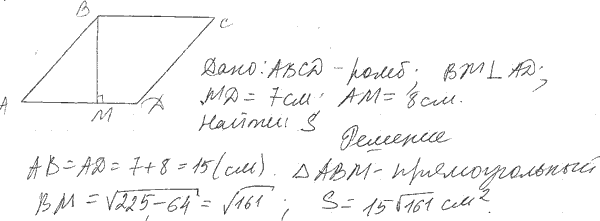 B C
A M D
Дано: ABCD - ромб; BM⊥AD;
MD = 7 см; AM = 8 см.
Найти: S
Решение
AB = AD = 7 + 8 = 15 (см). △ABM - прямоугольный
BM = √225 - 64 = √161; S = 15√161 см².